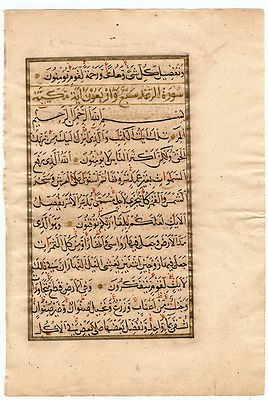 وتفصيل كل شئ وهدى ورحمة لقوم يؤمنون
سورة الرعد سبع واربعون آية مكية
بسم الله الرحمن الرحيم
المر تلك آيات الكتاب والذي انزل اليك من ربك
الحق ولكن اكثر الناس لا يؤمنون الله الذي رفع
السموات بغير عمد ترونها ثم استوى على العرش وسخر
الشمس والقمر كل يجري لاجل مسمى يدبر الامر يفصل
الآيات لعلكم بلقاء ربكم توقنون وهو الذي
مد الارض وجعل فيها رواسي وانهارا ومن كل الثمرات
جعل فيها زوجين اثنين يغشي الليل النهار ان في ذلك
لآيات لقوم يتفكرون وفي الارض قطع متجاورات
وجنات من اعناب وزرع ونخيل صنوان وغير صنوان
يسقى بماء واحد ونفضل بعضها على بعض في الاكل